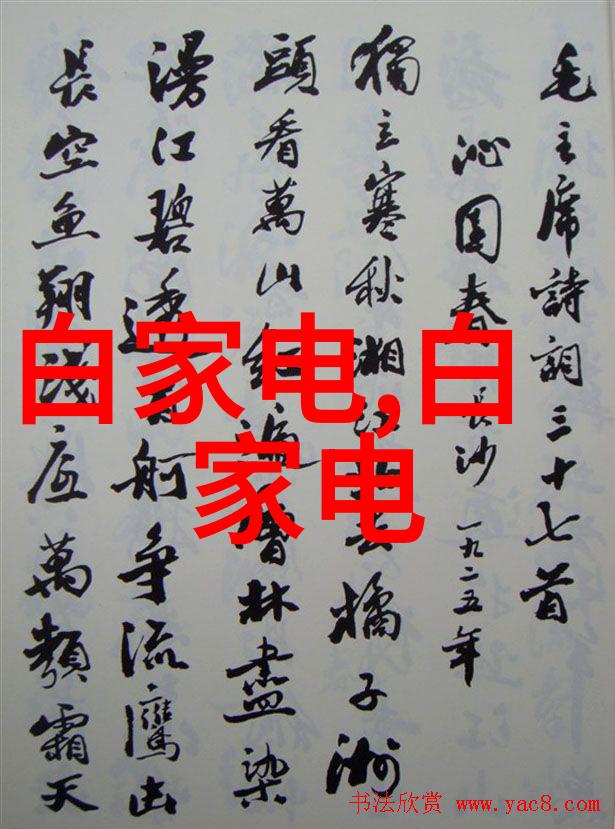 毛主席詩詞三十七首
沁園春 長沙 一九二五年
獨立寒秋湘江北去橘子洲
頭看萬山紅遍層林盡染
漫江碧透百舸争流鷹击
長空魚翔淺底萬類霜天
白家电,白
家电
书法欣赏 www.yac8.com